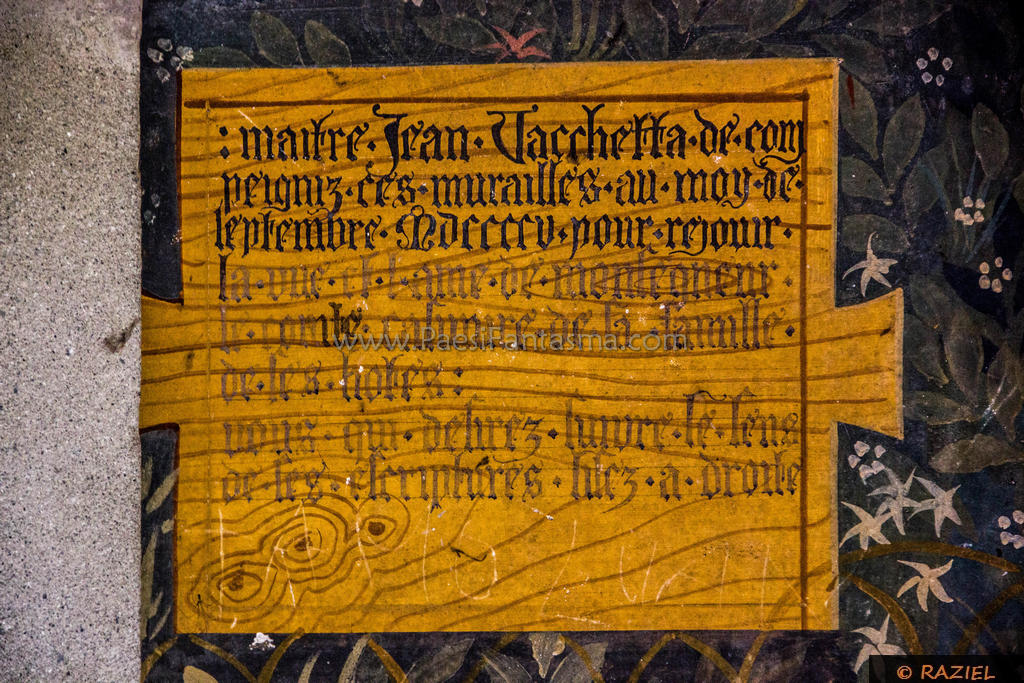 : maitre · Jean · Vacchetta · de · com
peigniz · ces · murailles · au · moy · de ·
septembre · Mdccccv · pour · rejouir ·
la · vue · et · l · ame · de · monseigneur ·
le · comte · et · de · la · famille ·
de · ses · hotes :
vous · qui · desirez · suyvre · le · sens
de · ses · escriptures · lisez · a · droite
www.PaesiFantasma.com
© RAZIEL